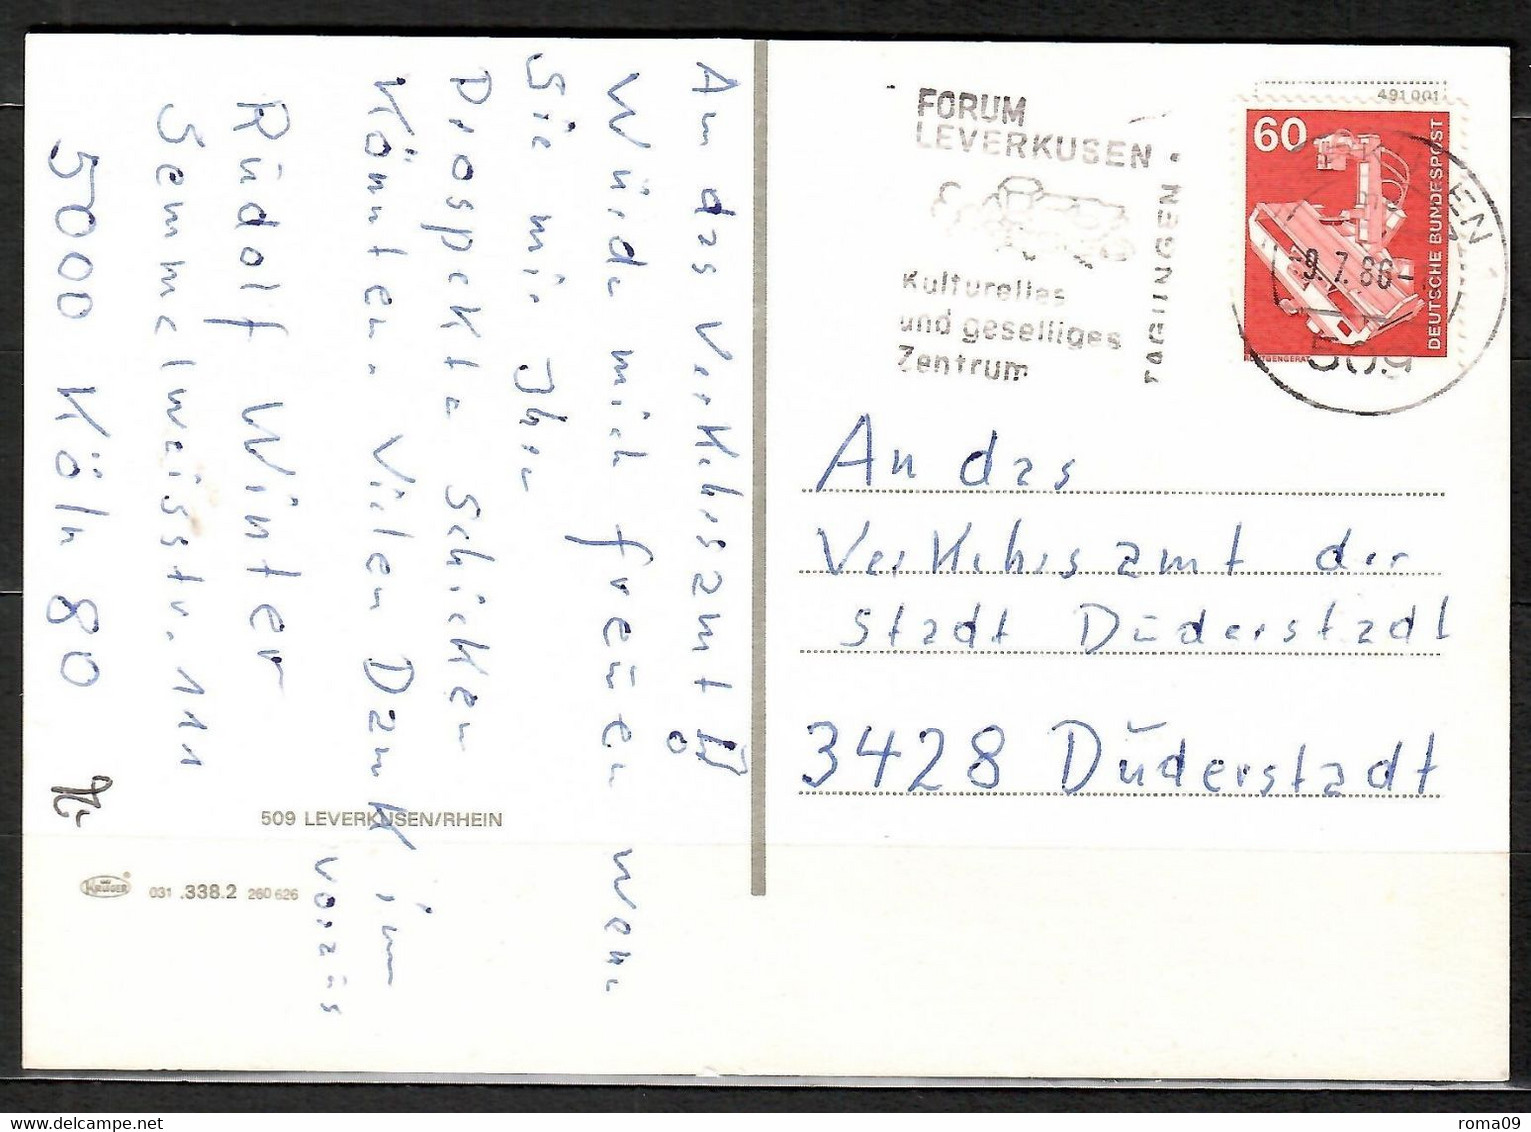 An das Verkehrsamt
Würde mich freuen wenn
Sie mir Ihre
Prospekte schicken
Könnten. Vielen Dank im
voraüs
Rüdolf Winter
Semmelweisstr. 111
5000 Köln 80
509 LEVERKUSEN/RHEIN
KRÜGER
031 .338.2 260 626
FORUM
LEVERKUSEN
Kulturelles
und geselliges
Zentrum
TAGUNGEN
491 001
60
DEUTSCHE BUNDESPOST
RÖNTGENGERÄT
9.7.86
509
An das
Verkehrsamt der
Stadt Düderstadt
3428 Düderstadt
roma09